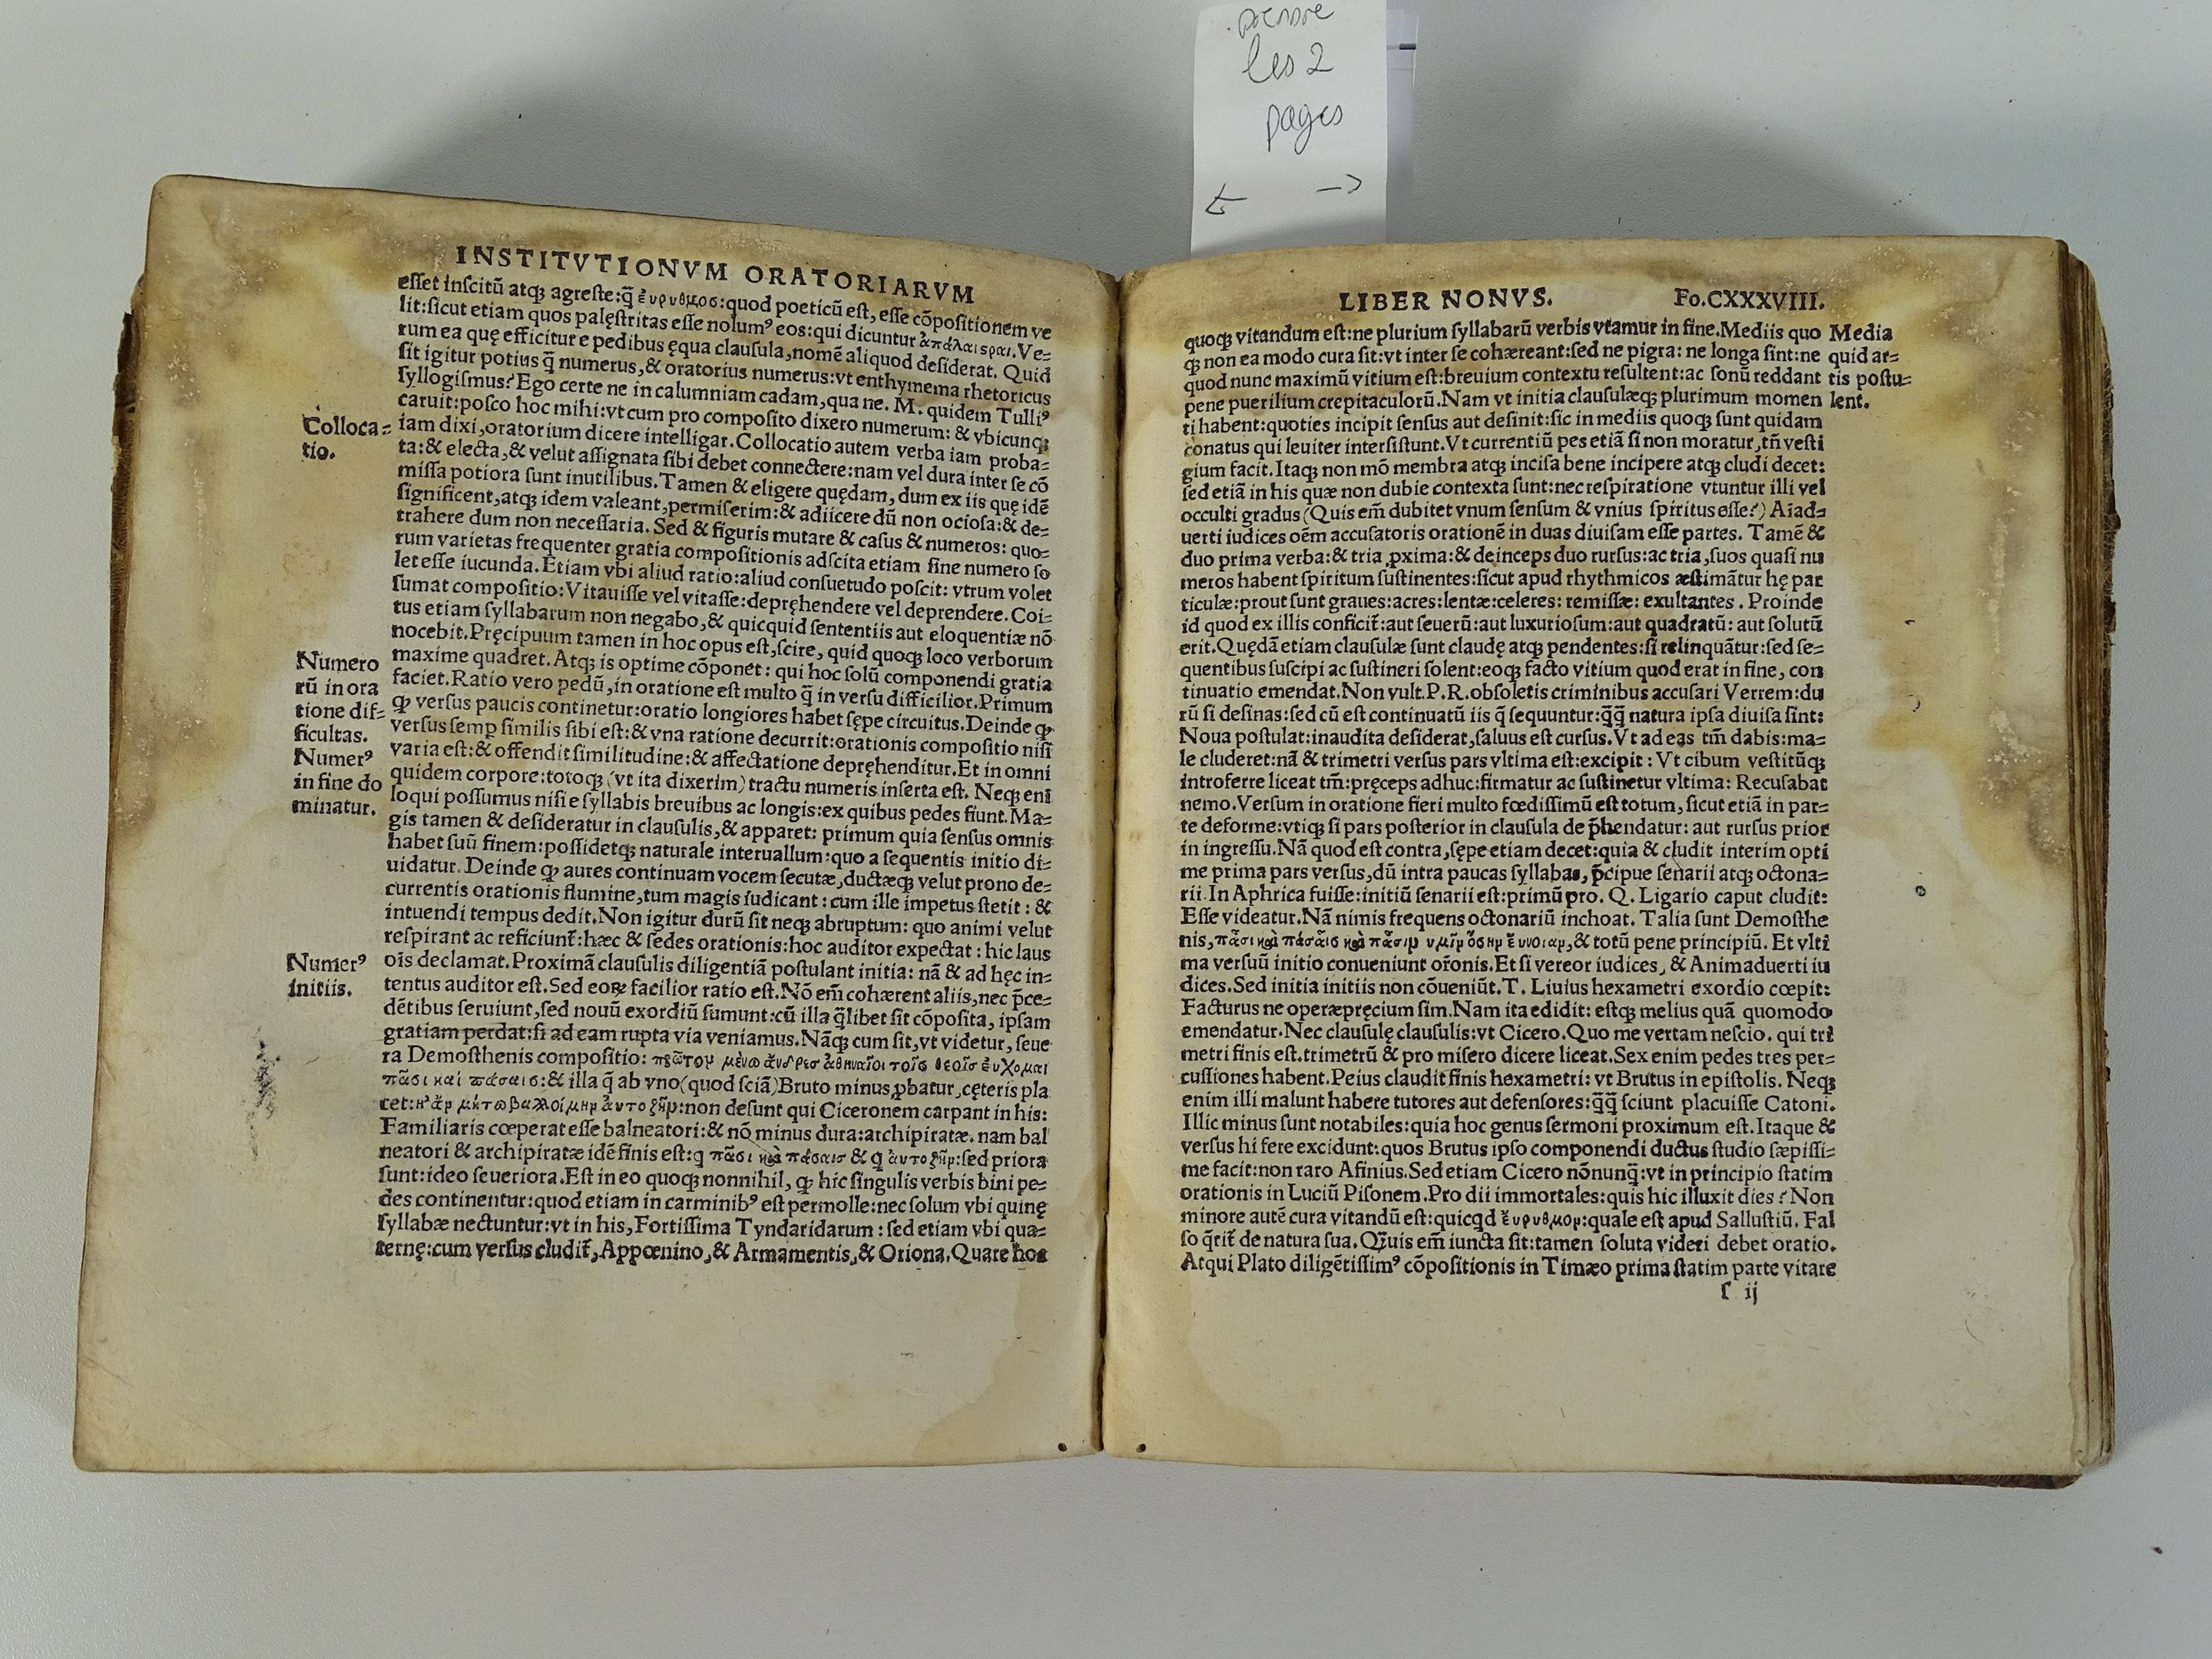 prendre
les 2
pages
← →
INSTITVTIONVM ORATORIARVM
esset inscitũ atq; agreste:q̃ ἔυρυθμοσ:quod poeticũ est, esse cõpositionem ve
lit:sicut etiam quos palęstritas esse nolumꝰ eos:qui dicuntur ἀπάλαιςραι.Ve=
rum ea quę efficitur e pedibus ęqua clausula,nomẽ aliquod desiderat. Quid
sit igitur potius q̃ numerus,& oratorius numerus:vt enthymema rhetoricus
syllogismus? Ego certe ne in calumniam cadam,qua ne. M. quidem Tulliꝰ
caruit:posco hoc mihi:vt cum pro composito dixero numerum: & vbicunq;
iam dixi,oratorium dicere intelligar.Collocatio autem verba iam proba=
ta:& electa,& velut assignata sibi debet connectere:nam vel dura inter se cõ
missa potiora sunt inutilibus.Tamen & eligere quędam, dum ex iis quę idẽ
significent,atq; idem valeant,permiserim:& adiicere dũ non ociosa:& de=
trahere dum non necessaria. Sed & figuris mutare & casus & numeros: quo=
rum varietas frequenter gratia compositionis adscita etiam sine numero so
let esse iucunda.Etiam vbi aliud ratio:aliud consuetudo poscit: vtrum volet
sumat compositio:Vitauisse vel vitasse:depręhendere vel deprendere.Coi=
tus etiam syllabarum non negabo,& quicquid sententiis aut eloquentiæ nõ
nocebit.Pręcipuum tamen in hoc opus est,scire, quid quoq; loco verborum
maxime quadret.Atq; is optime cõponet: qui hoc solũ componendi gratia
faciet.Ratio vero pedũ,in oratione est multo q̃ in versu difficilior.Primum
ꝙ versus paucis continetur:oratio longiores habet sępe circuitus.Deinde ꝙ
versus semꝑ similis sibi est:& vna ratione decurrit:orationis compositio nisi
varia est:& offendit similitudine:& affectatione depręhenditur.Et in omni
quidem corpore:totoq; (vt ita dixerim) tractu numeris inserta est. Neq; eni
loqui possumus nisi e syllabis breuibus ac longis:ex quibus pedes fiunt.Ma=
gis tamen & desideratur in clausulis,& apparet: primum quia sensus omnis
habet suũ finem:possidetq; naturale interuallum:quo a sequentis initio di=
uidatur.Deinde ꝙ aures continuam vocem secutæ,ductæq; velut prono de=
currentis orationis flumine,tum magis iudicant: cum ille impetus stetit: &
intuendi tempus dedit.Non igitur durũ sit neq; abruptum: quo animi velut
respirant ac reficiunt̃:hæc & sedes orationis:hoc auditor expectat: hic laus
oĩs declamat.Proximã clausulis diligentiã postulant initia: nã & ad hęc in=
tentus auditor est.Sed eoꝝ facilior ratio est.Nõ em̃ cohærent aliis,nec p̃ce=
dẽtibus seruiunt,sed nouũ exordiũ sumunt:cũ illa q̃libet sit cõposita, ipsam
gratiam perdat:si ad eam rupta via veniamus.Nãq; cum sit,vt videtur, seue
ra Demosthenis compositio: πρῶτομ μένω ἄνδρεσ ἀθηναῖοι τοῖσ θεοῖσ ἔυχομαι
πᾶσι καί πάσαισ:& illa q̃ ab vno(quod sciã)Bruto minus ꝓbatur,cęteris pla
cet:κ'ἄμ μήτωβαλλοίμημ ἀυτοξῆμ:non desunt qui Ciceronem carpant in his:
Familiaris cœperat esse balneatori:& nõ minus dura:archipiratæ. nam bal
neatori & archipiratæ idẽ finis est:q πᾶσι καὶ πάσαισ & q ἀυτοξῆμ:sed priora
sunt:ideo seueriora.Est in eo quoq; nonnihil, ꝙ hic singulis verbis bini pe=
des continentur:quod etiam in carminibꝰ est permolle:nec solum vbi quinę
syllabæ nectuntur:vt in his,Fortissima Tyndaridarum: sed etiam vbi qua=
ternę:cum versus cludit̃,Appœnino,& Armamentis,& Oriona.Quare hoc
Colloca=
tio.
Numero
rũ in ora
tione dif=
ficultas.
Numerꝰ
in fine do
minatur.
Numerꝰ
initiis.
LIBER NONVS. Fo.CXXXVIII.
quoq; vitandum est:ne plurium syllabarũ verbis vtamur in fine.Mediis quo
q; non ea modo cura sit:vt inter se cohæreant:sed ne pigra: ne longa sint:ne
quod nunc maximũ vitium est:breuium contextu resultent:ac sonũ reddant
pene puerilium crepitaculorũ.Nam vt initia clausulæq; plurimum momen
ti habent:quoties incipit sensus aut desinit:sic in mediis quoq; sunt quidam
conatus qui leuiter intersistunt.Vt currentiũ pes etiã si non moratur,tñ vesti
gium facit.Itaq; non mõ membra atq; incisa bene incipere atq; cludi decet:
sed etiã in his quæ non dubie contexta sunt:nec respiratione vtuntur illi vel
occulti gradus(Quis em̃ dubitet vnum sensum & vnius spiritus esse?) Aĩad=
uerti iudices oẽm accusatoris orationẽ in duas diuisam esse partes. Tamẽ &
duo prima verba:& tria ꝓxima:& deinceps duo rursus:ac tria,suos quasi nu
meros habent spiritum sustinentes:sicut apud rhythmicos æstimãtur hę par
ticulæ:prout sunt graues:acres:lentæ:celeres: remissæ: exultantes. Proinde
id quod ex illis conficit̃:aut seuerũ:aut luxuriosum:aut quadratũ: aut solutũ
erit.Quędã etiam clausulæ sunt claudę atq; pendentes:si relinquãtur:sed se=
quentibus suscipi ac sustineri solent:eoq; facto vitium quod erat in fine, con
tinuatio emendat.Non vult.P.R.obsoletis criminibus accusari Verrem:du
rũ si desinas:sed cũ est continuatũ iis q̃ sequuntur:q̃q̃ natura ipsa diuisa sint:
Noua postulat:inaudita desiderat,saluus est cursus.Vt ad eas tm̃ dabis:ma=
le cluderet:nã & trimetri versus pars vltima est:excipit: Vt cibum vestitũq;
introferre liceat tm̃:pręceps adhuc:firmatur ac sustinetur vltima: Recusabat
nemo.Versum in oratione fieri multo fœdissimũ est totum, sicut etiã in par=
te deforme:vtiq; si pars posterior in clausula de p̃hendatur: aut rursus prior
in ingressu.Nã quod est contra,sępe etiam decet:quia & cludit interim opti
me prima pars versus,dũ intra paucas syllabas, p̃cipue senarii atq; octona=
rii.In Aphrica fuisse:initiũ senarii est:primũ pro. Q. Ligario caput cludit:
Esse videatur.Nã nimis frequens octonariũ inchoat. Talia sunt Demosthe
nis,πᾶσι καὶ πάσαισ καὶ πᾶσιμ υμῖμ ὅσημ ἔυνοιαμ,& totũ pene principiũ. Et vlti
ma versuũ initio conueniunt or̃onis.Et si vereor iudices, & Animaduerti iu
dices.Sed initia initiis non cõueniũt.T. Liuius hexametri exordio cœpit:
Facturus ne operæpręcium sim.Nam ita edidit: estq; melius quã quomodo
emendatur.Nec clausulę clausulis:vt Cicero.Quo me vertam nescio. qui tri
metri finis est.trimetrũ & pro misero dicere liceat.Sex enim pedes tres per=
cussiones habent.Peius claudit finis hexametri: vt Brutus in epistolis. Neq;
enim illi malunt habere tutores aut defensores:q̃q̃ sciunt placuisse Catoni.
Illic minus sunt notabiles:quia hoc genus sermoni proximum est.Itaque &
versus hi fere excidunt:quos Brutus ipso componendi ductus studio sæpissi=
me facit:non raro Asinius.Sed etiam Cicero nõnunq̃:vt in principio statim
orationis in Luciũ Pisonem.Pro dii immortales:quis hic illuxit dies? Non
minore autẽ cura vitandũ est:quicqd ἔυρυθμομ:quale est apud Sallustiũ. Fal
so q̃rit̃ de natura sua.Q̃uis em̃ iuncta sit:tamen soluta videri debet oratio.
Atqui Plato diligẽtissimꝰ cõpositionis in Timæo prima statim parte vitare
s ij
Media
quid ar=
tis postu=
lent.